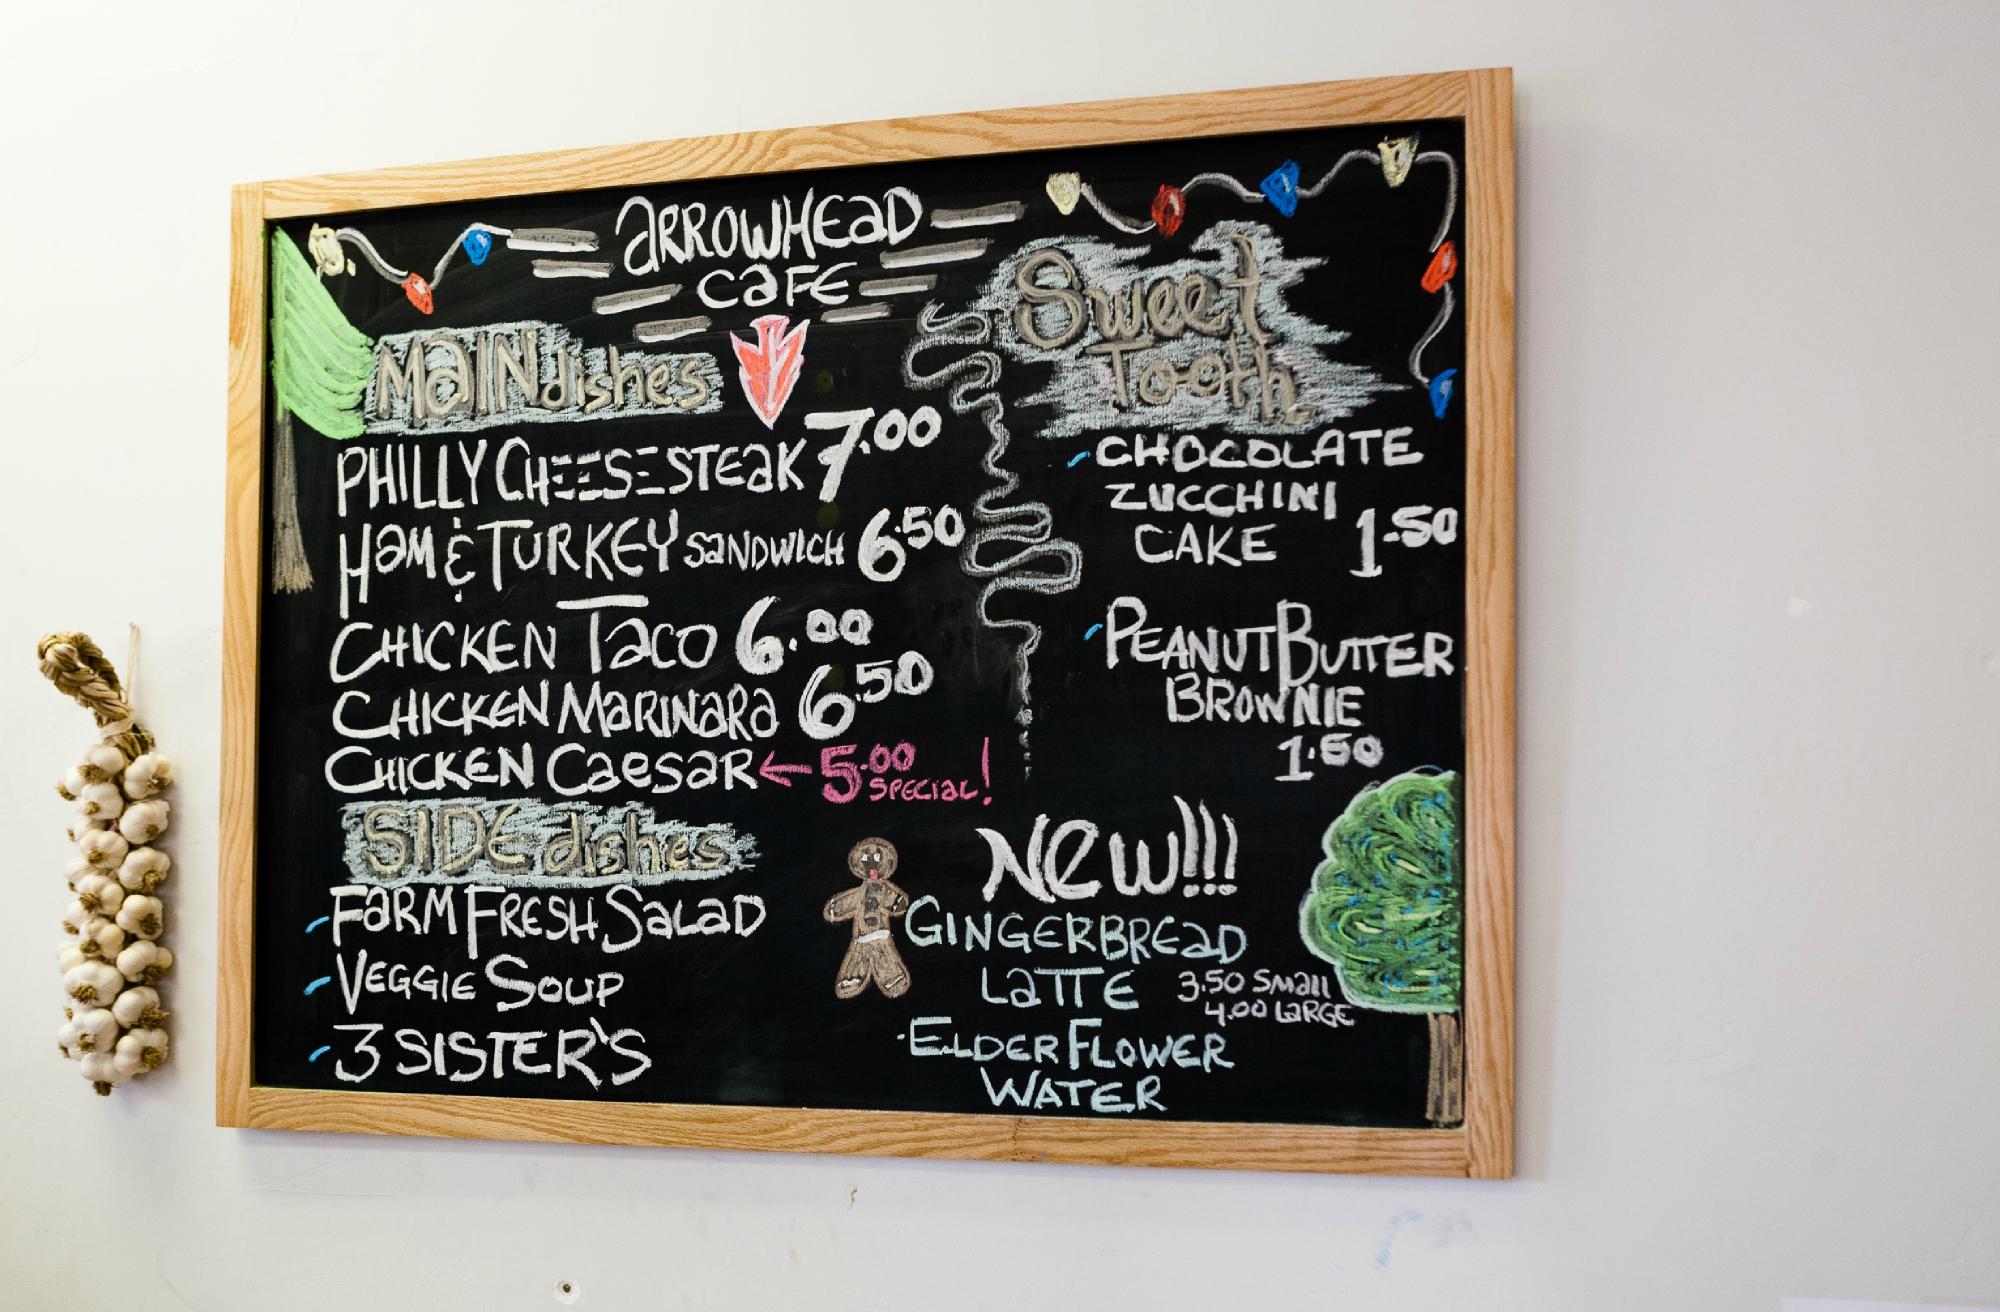 ARROWHEAD
CAFE
MAIN dishes
PHILLY CHEESESTEAK 7.00
HAM & TURKEY SANDWICH 6.50
CHICKEN TACO 6.00
CHICKEN MARINARA 6.50
CHICKEN CAESAR ← 5.00 SPECIAL!
SIDE dishes
- FARM FRESH SALAD
- VEGGIE SOUP
- 3 SISTER'S
Sweet
Tooth
- CHOCOLATE
ZUCCHINI
CAKE 1-50
- PEANUT BUTTER
BROWNIE
1.50
NEW!!!
GINGERBREAD
LATTE 3.50 Small
4.00 LARGE
·ELDER FLOWER
WATER